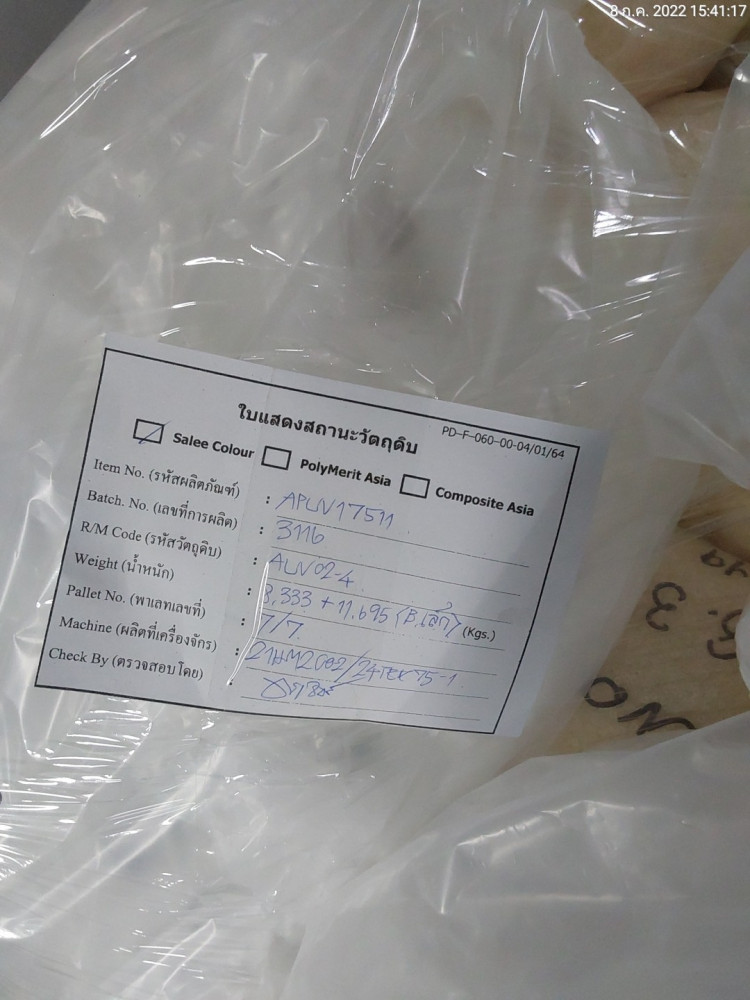 8 ก.ค. 2022 15:41:17
ใบแสดงสถานะวัตถุดิบ
PD-F-060-00-04/01/64
Salee Colour PolyMerit Asia Composite Asia
Item No. (รหัสผลิตภัณฑ์) : APUV17511
Batch. No. (เลขที่การผลิต) : 3116
R/M Code (รหัสวัตถุดิบ) : AUV02-4
Weight (น้ำหนัก) : 8,333 + 11,695 (B.เล็ก) (Kgs.)
Pallet No. (พาเลทเลขที่) : 7/7
Machine (ผลิตที่เครื่องจักร) : 21HM2002/24TEX75-1
Check By (ตรวจสอบโดย) :
G. 3
NO